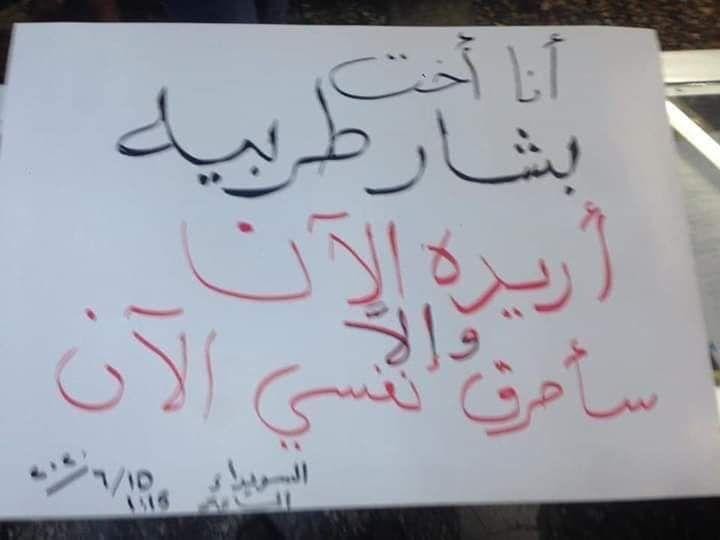 أنا أخت
بشار طربيه
أريده الآن
وإلا
سأحرق نفسي الآن
السويداء ٢٠٢٠/٦/١٥
الساعة ١:١٥